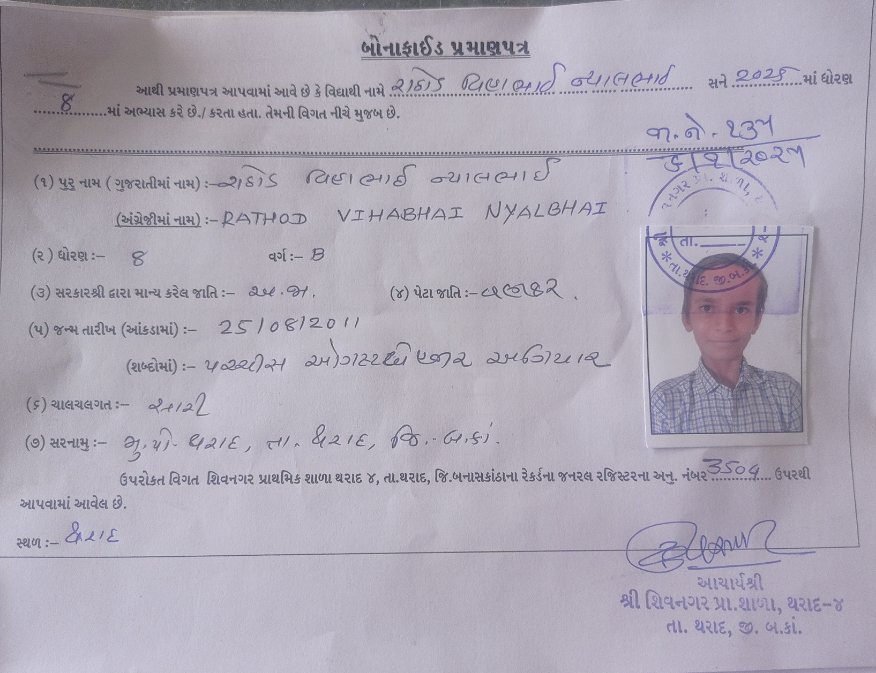 બોનાફાઈડ પ્રમાણપત્ર
આથી પ્રમાણપત્ર આપવામાં આવે છે કે વિદ્યાથી નામે રાઠોડ વિહાભાઈ ન્યાલભાઈ સને ૨૦૨૬ માં ધોરણ
8 માં અભ્યાસ કરે છે./ કરતા હતા. તેમની વિગત નીચે મુજબ છે.
જા.નં. ૧૩૫
(૧) પુરુ નામ ( ગુજરાતીમાં નામ) :- રાઠોડ વિહાભાઈ ન્યાલભાઈ
(અંગ્રેજીમાં નામ) :- RATHOD VIHABHAI NYALBHAI
(૨) ધોરણ :- 8 વર્ગ :- B
(૩) સરકારશ્રી દ્વારા માન્ય કરેલ જાતિ :- અ.જા. (૪) પેટા જાતિ :- વણકર.
(૫) જન્મ તારીખ (આંકડામાં) :- 25/08/2011
(શબ્દોમાં) :- પચ્ચીસ ઓગસ્ટ બે હજાર અગિયાર
(૬) ચાલચલગત :- સારી
(૭) સરનામુ :- મુ.પો. થરાદ, તા. થરાદ, જિ. બ.કાં.
ઉપરોકત વિગત શિવનગર પ્રાથમિક શાળા થરાદ ૪, તા.થરાદ, જિ.બનાસકાંઠાના રેકર્ડના જનરલ રજિસ્ટરના અનુ. નંબર 3504 ઉપરથી
આપવામાં આવેલ છે.
સ્થળ :- થરાદ
આચાર્યશ્રી
શ્રી શિવનગર પ્રા.શાળા, થરાદ-૪
તા. થરાદ, જી. બ.કાં.